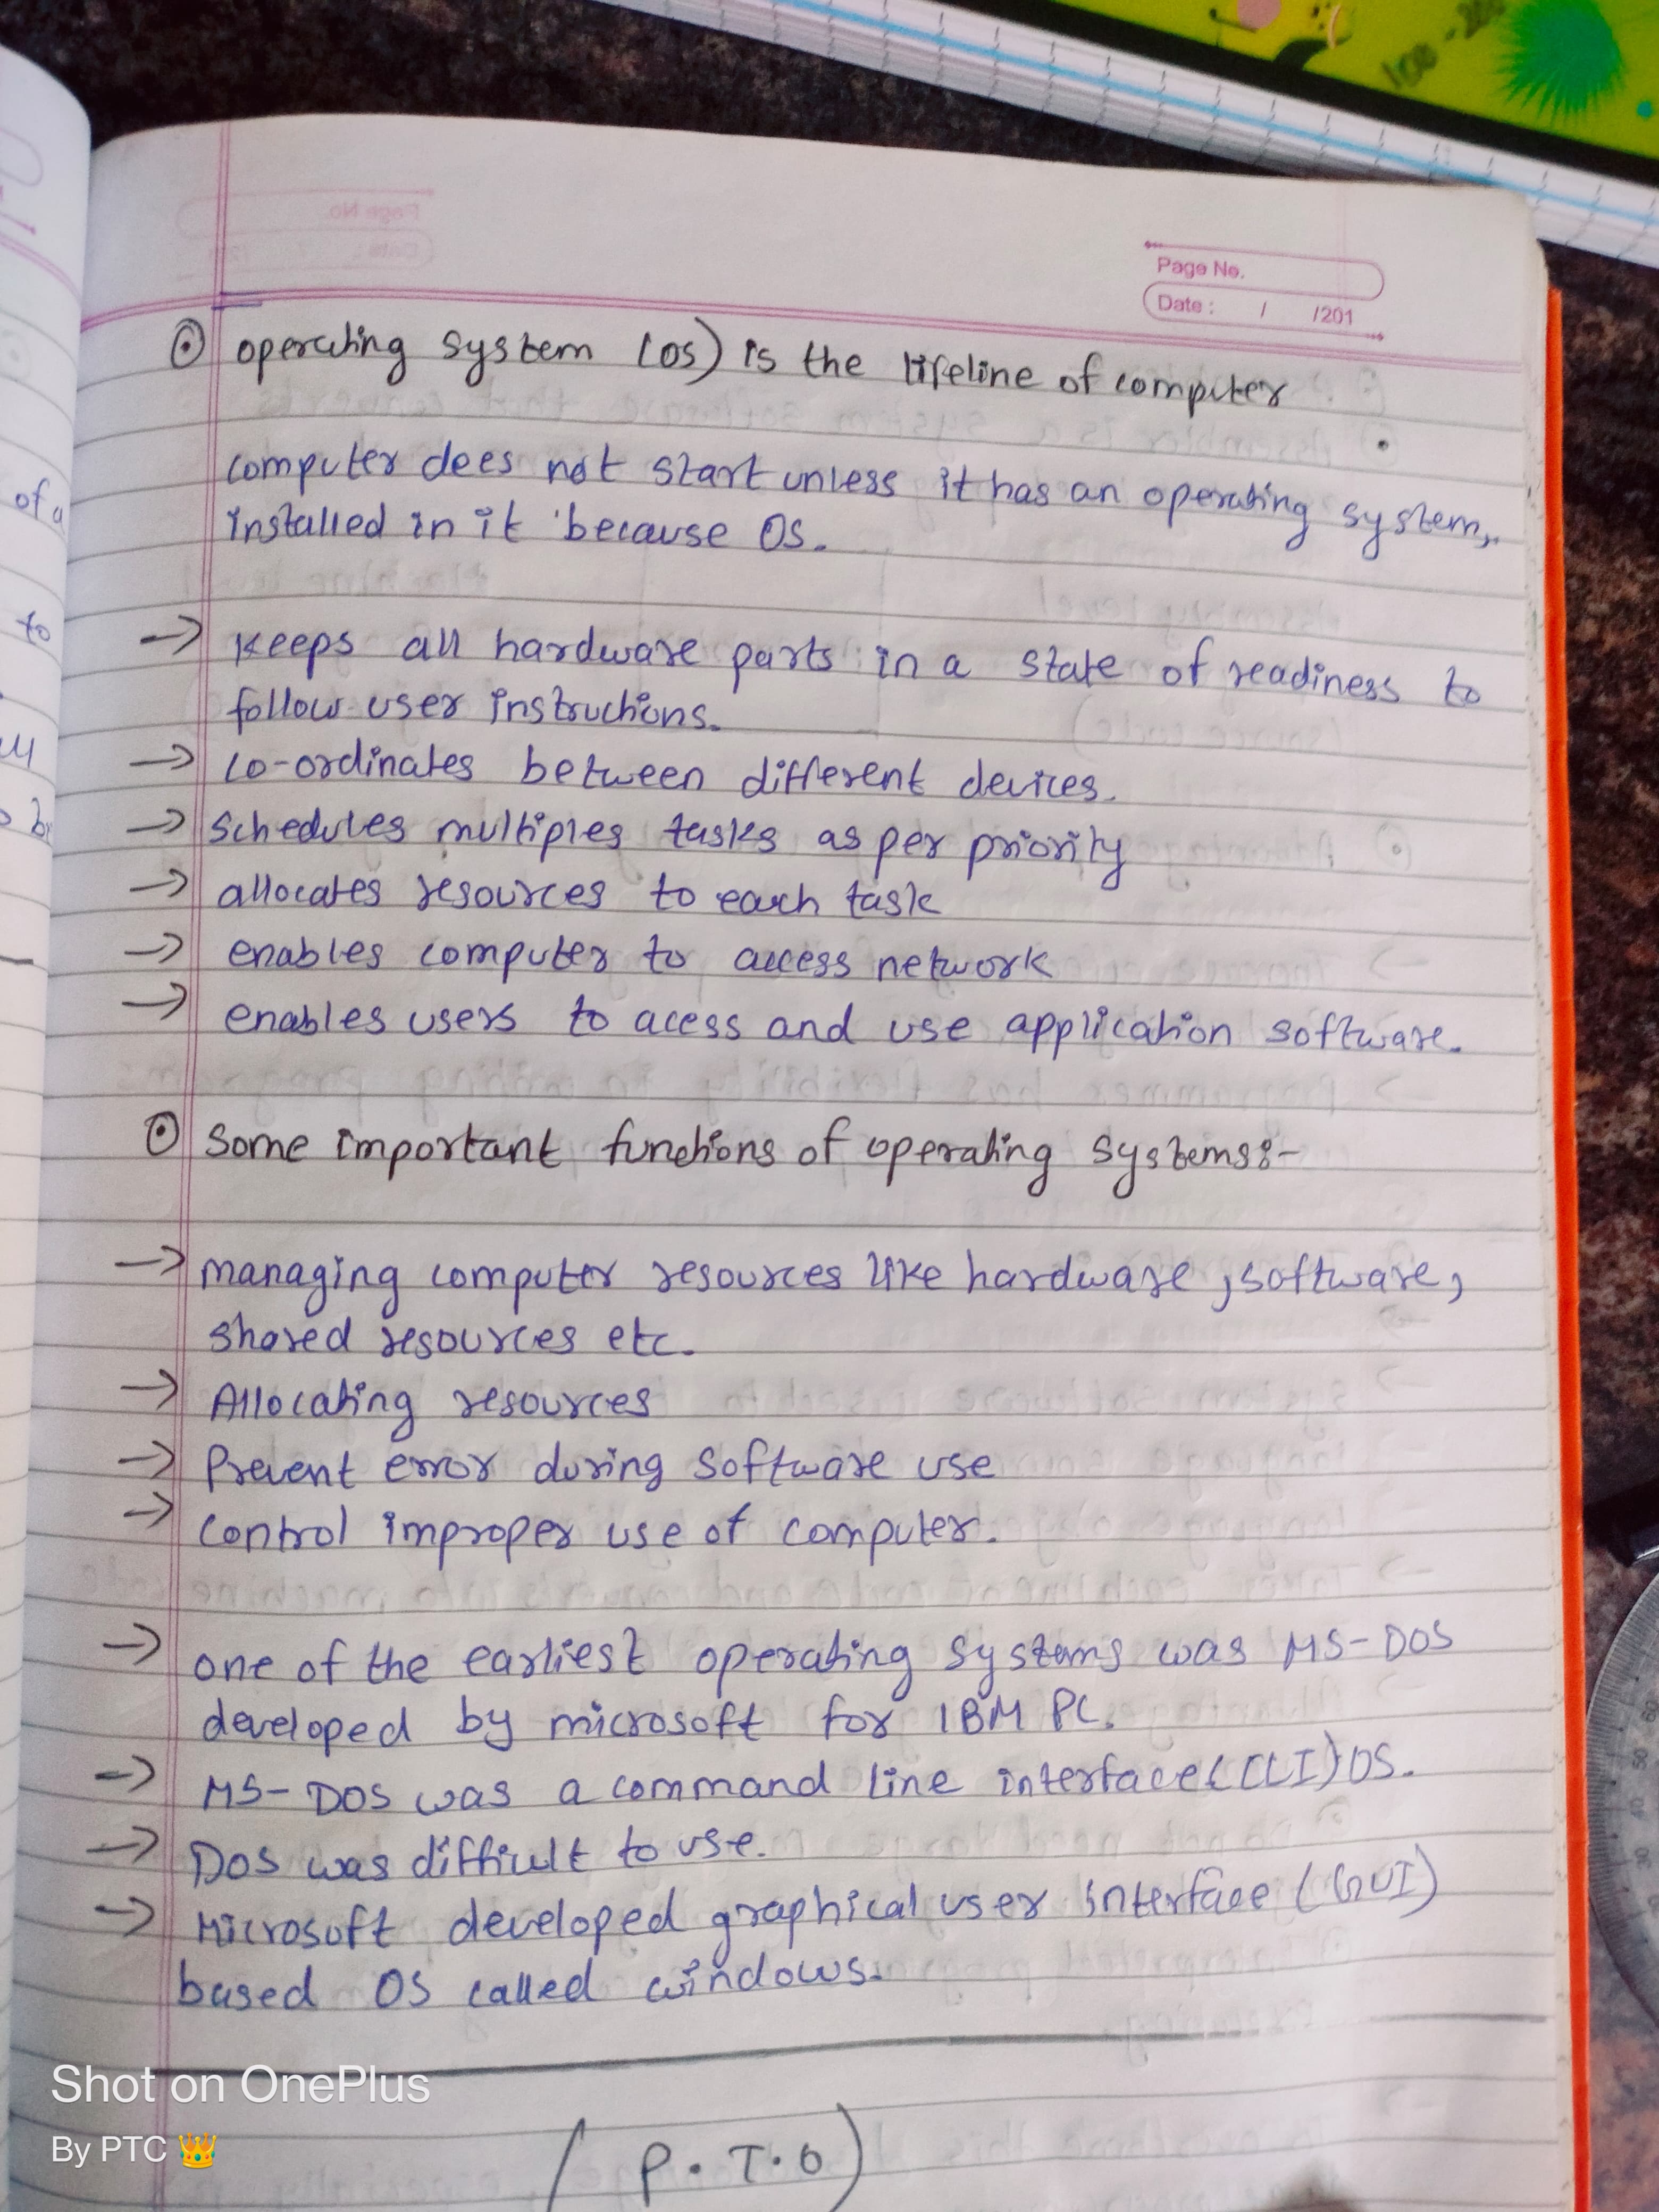 100 - 200
Page No.
Date : / /201
⊙ operating system (os) is the lifeline of computer
computer dees not start unless it has an operating system,
installed in it because OS.
→ Keeps all hardware parts in a state of readiness to
follow user instructions.
→ co-ordinates between different devices.
→ schedules multiples tasks as per priority
→ allocates resources to each task
→ enables computer to access network
→ enables users to acess and use application software.
⊙ some important functions of operating systems:-
→ managing computer resources like hardware, software,
shared resources etc.
→ Allocating resources
→ Prevent error during software use
→ control improper use of computer.
→ one of the earliest operating systems was MS-DOS
developed by microsoft for IBM PC.
→ MS-DOS was a command line interface (CLI) OS.
→ DOS was difficult to use.
→ Microsoft developed graphical user interface (GUI)
based OS called windows.
(P.T.O)
of a
to
Shot on OnePlus
By PTC 👑